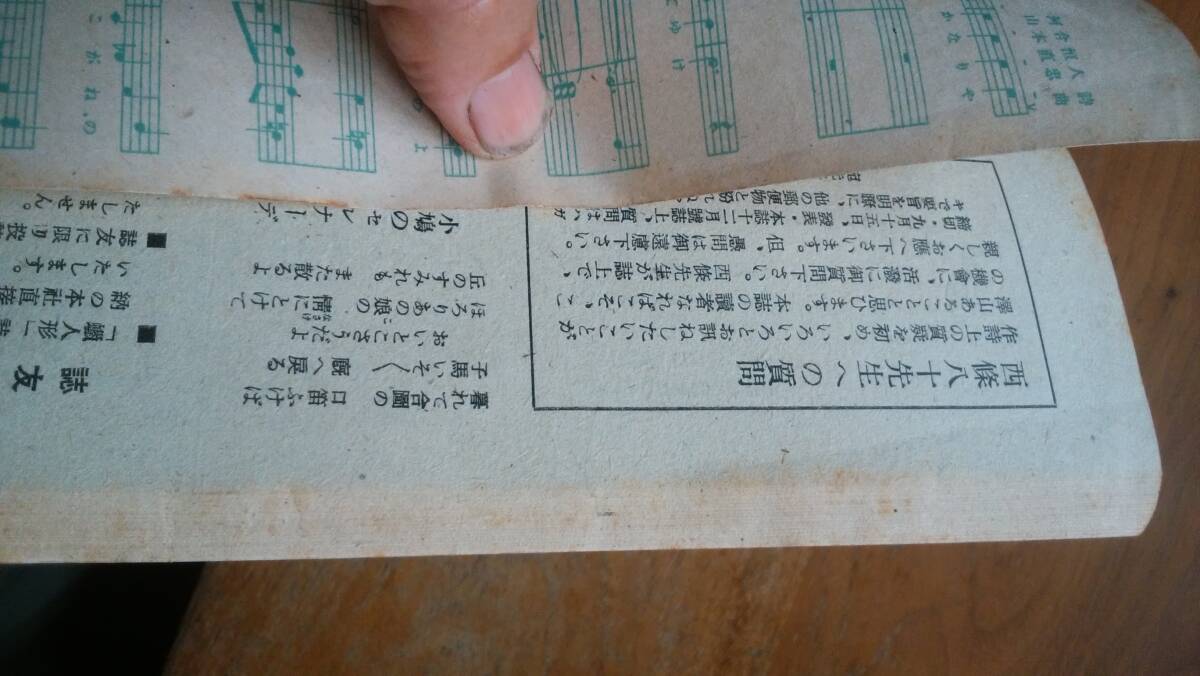 西條八十先生への質問
作詩上の質疑を初め、いろいろとお訊ねしたいことが
澤山あることと思ひます。本誌の讀者なればこそ、こ
の機會に、活潑に御質問下さい。西條先生が誌上で、
親しくお應へ下さいます。但、愚問は御遠慮下さい。
締切・九月十五日、發表・本誌十二月號誌上、質問はハガ
キで要旨を明瞭に、他の郵便物と
暮れて合圖の 口笛ふけば
子馬いそ〳〵 厩へ戻る
おいとこさうだよ
ほろりあの娘の 情にとけて
丘のすみれも また散るよ
小鳩のセレナーデ
誌友
■「蠟人形」誌
納の本社直接
いたします。
■誌友に限り投
たしません。
山本直忠 曲
かなりや
てゆけ
よ
こがれ、の